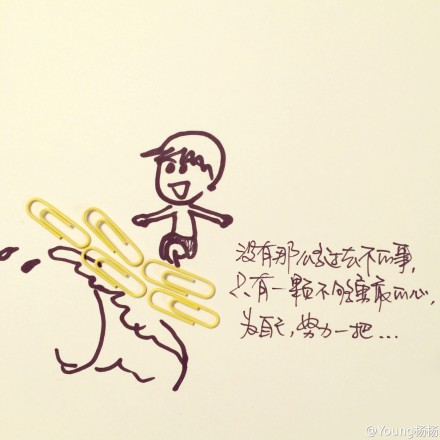 没有那么过去不的事,
只有一颗不够的心,
为自己,努力一把...
@Young杨杨